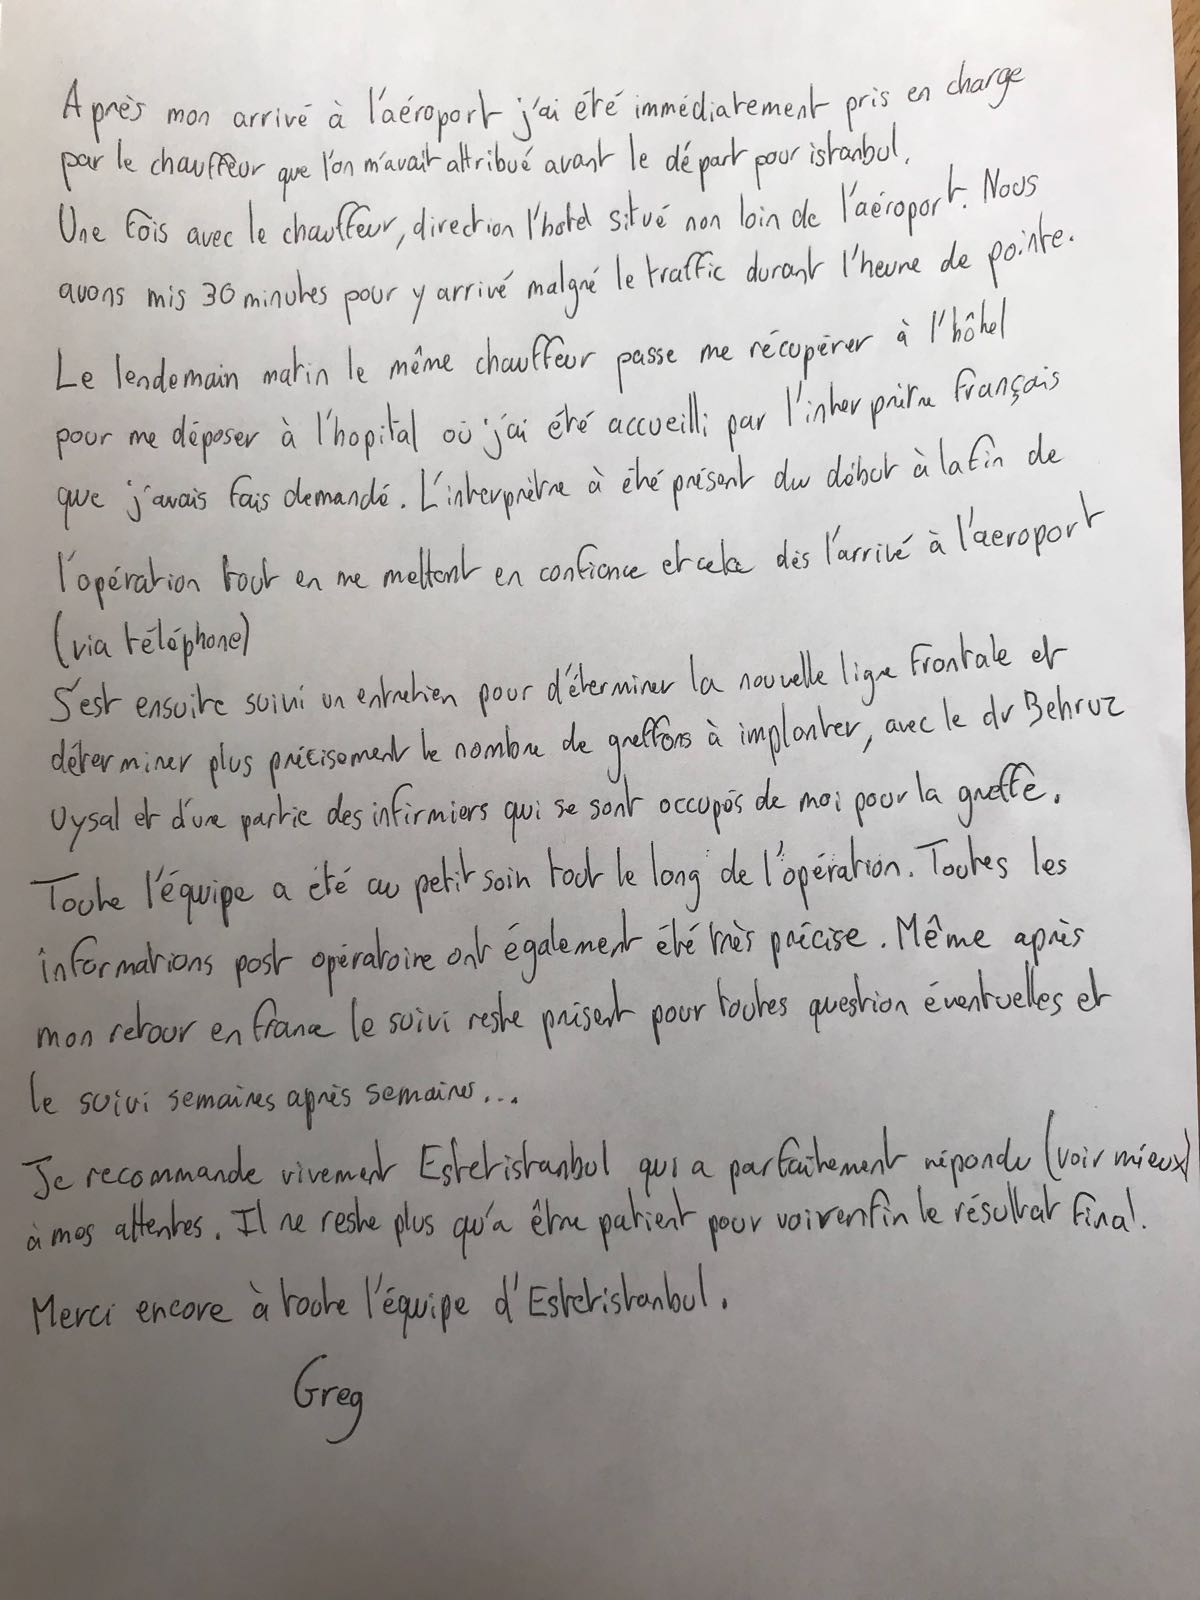 Après mon arrivé à l'aéroport j'ai été immédiatement pris en charge
par le chauffeur que l'on m'avait attribué avant le départ pour istanbul.
Une fois avec le chauffeur, direction l'hotel situé non loin de l'aéroport. Nous
avons mis 30 minutes pour y arrivé malgré le traffic durant l'heure de pointe.
Le lendemain matin le même chauffeur passe me récupérer à l'hôtel
pour me déposer à l'hopital où j'ai été accueilli par l'interprètre français
que j'avais fais demandé. L'interprètre à été présent du début à la fin de
l'opération tout en me mettant en confiance et cela dès l'arrivé à l'aeroport
(via téléphone)
S'est ensuite suivi un entretien pour d'éterminer la nouvelle ligne frontale et
déterminer plus précisement le nombre de greffons à implanter, avec le dr Behruz
Uysal et d'une partie des infirmiers qui se sont occupés de moi pour la greffe.
Toute l'équipe a été au petit soin tout le long de l'opération. Toutes les
informations post opératoire ont également été très précise. Même après
mon retour en france le suivi reste présent pour toutes question éventuelles et
le suivi semaines après semaines...
Je recommande vivement Estetistanbul qui a parfaitement répondu (voir mieux)
à mes attentes. Il ne reste plus qu'a être patient pour voir enfin le résultat final.
Merci encore à toute l'équipe d'Estetistanbul.
Greg